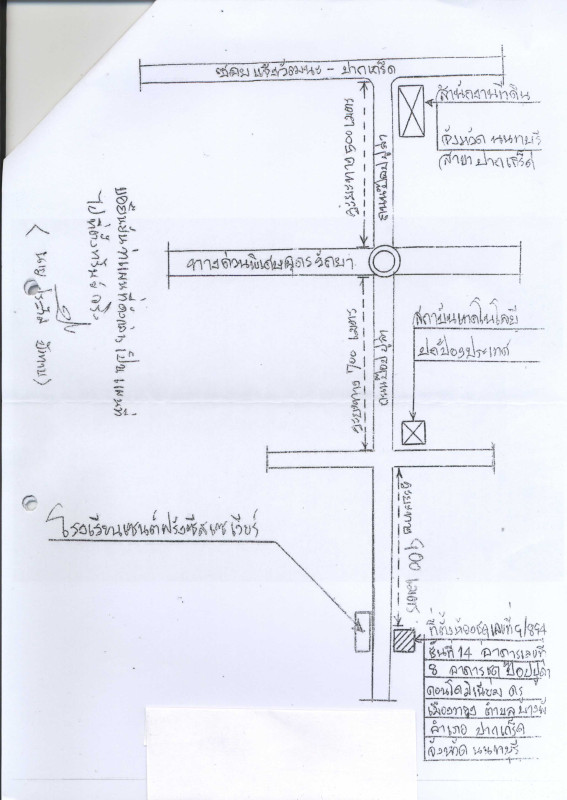 ถนน แจ้งวัฒนะ - ปากเกร็ด
สำนักงานที่ดิน
จังหวัด นนทบุรี
(สาขา ปากเกร็ด)
ระยะทาง 500 เมตร
ถนนป๊อปปูล่า
ทางด่วนพิเศษอุดรรัถยา
ขอยืนยันว่าแผนที่ดังกล่าว เป็น แผนที่
ไปที่ตั้งทรัพย์จริง
ระยะทาง 700 เมตร
ถนนป๊อปปูล่า
สถาบันเทคโนโลยี
ป้องประเทศ
ระยะทาง 400 เมตร
โรงเรียนเซนต์ฟรังซีสเซเวียร์
ที่ตั้งห้องชุดเลขที่
ชั้นที่ 14 อาคารเลขที่
8 อาคารชุด ป๊อปปูล่า
คอนโดมิเนียม
เมืองทอง ตำบล บางพูด
อำเภอ ปากเกร็ด
จังหวัด นนทบุรี